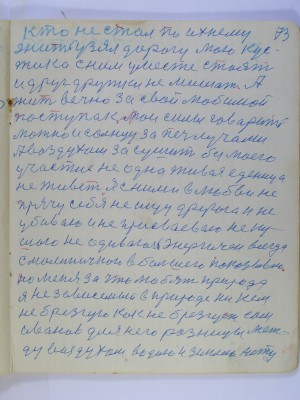 Кто не стал по ихнему 73
жить узял дорогу мою Кус-
жика сним уместе стоят
и друг дружки не мешат. А
жит вечно за свой любимой
поступак, мои силы говарят
можно и солнцу за печ лучами
А воздухом за сушит бы моего
участие не одна живая еденица
не живет Я сними в любви не
прячу себя не ищу другога и не
убиваю и не присваеваю не ну-
не одиваюся Энергичен всегда
по меня за что любят природа
я не зависемый в природе ни кем
не брезгую как не брезгует сам
для него разницы меж-
ду воздухом водою и землею нету